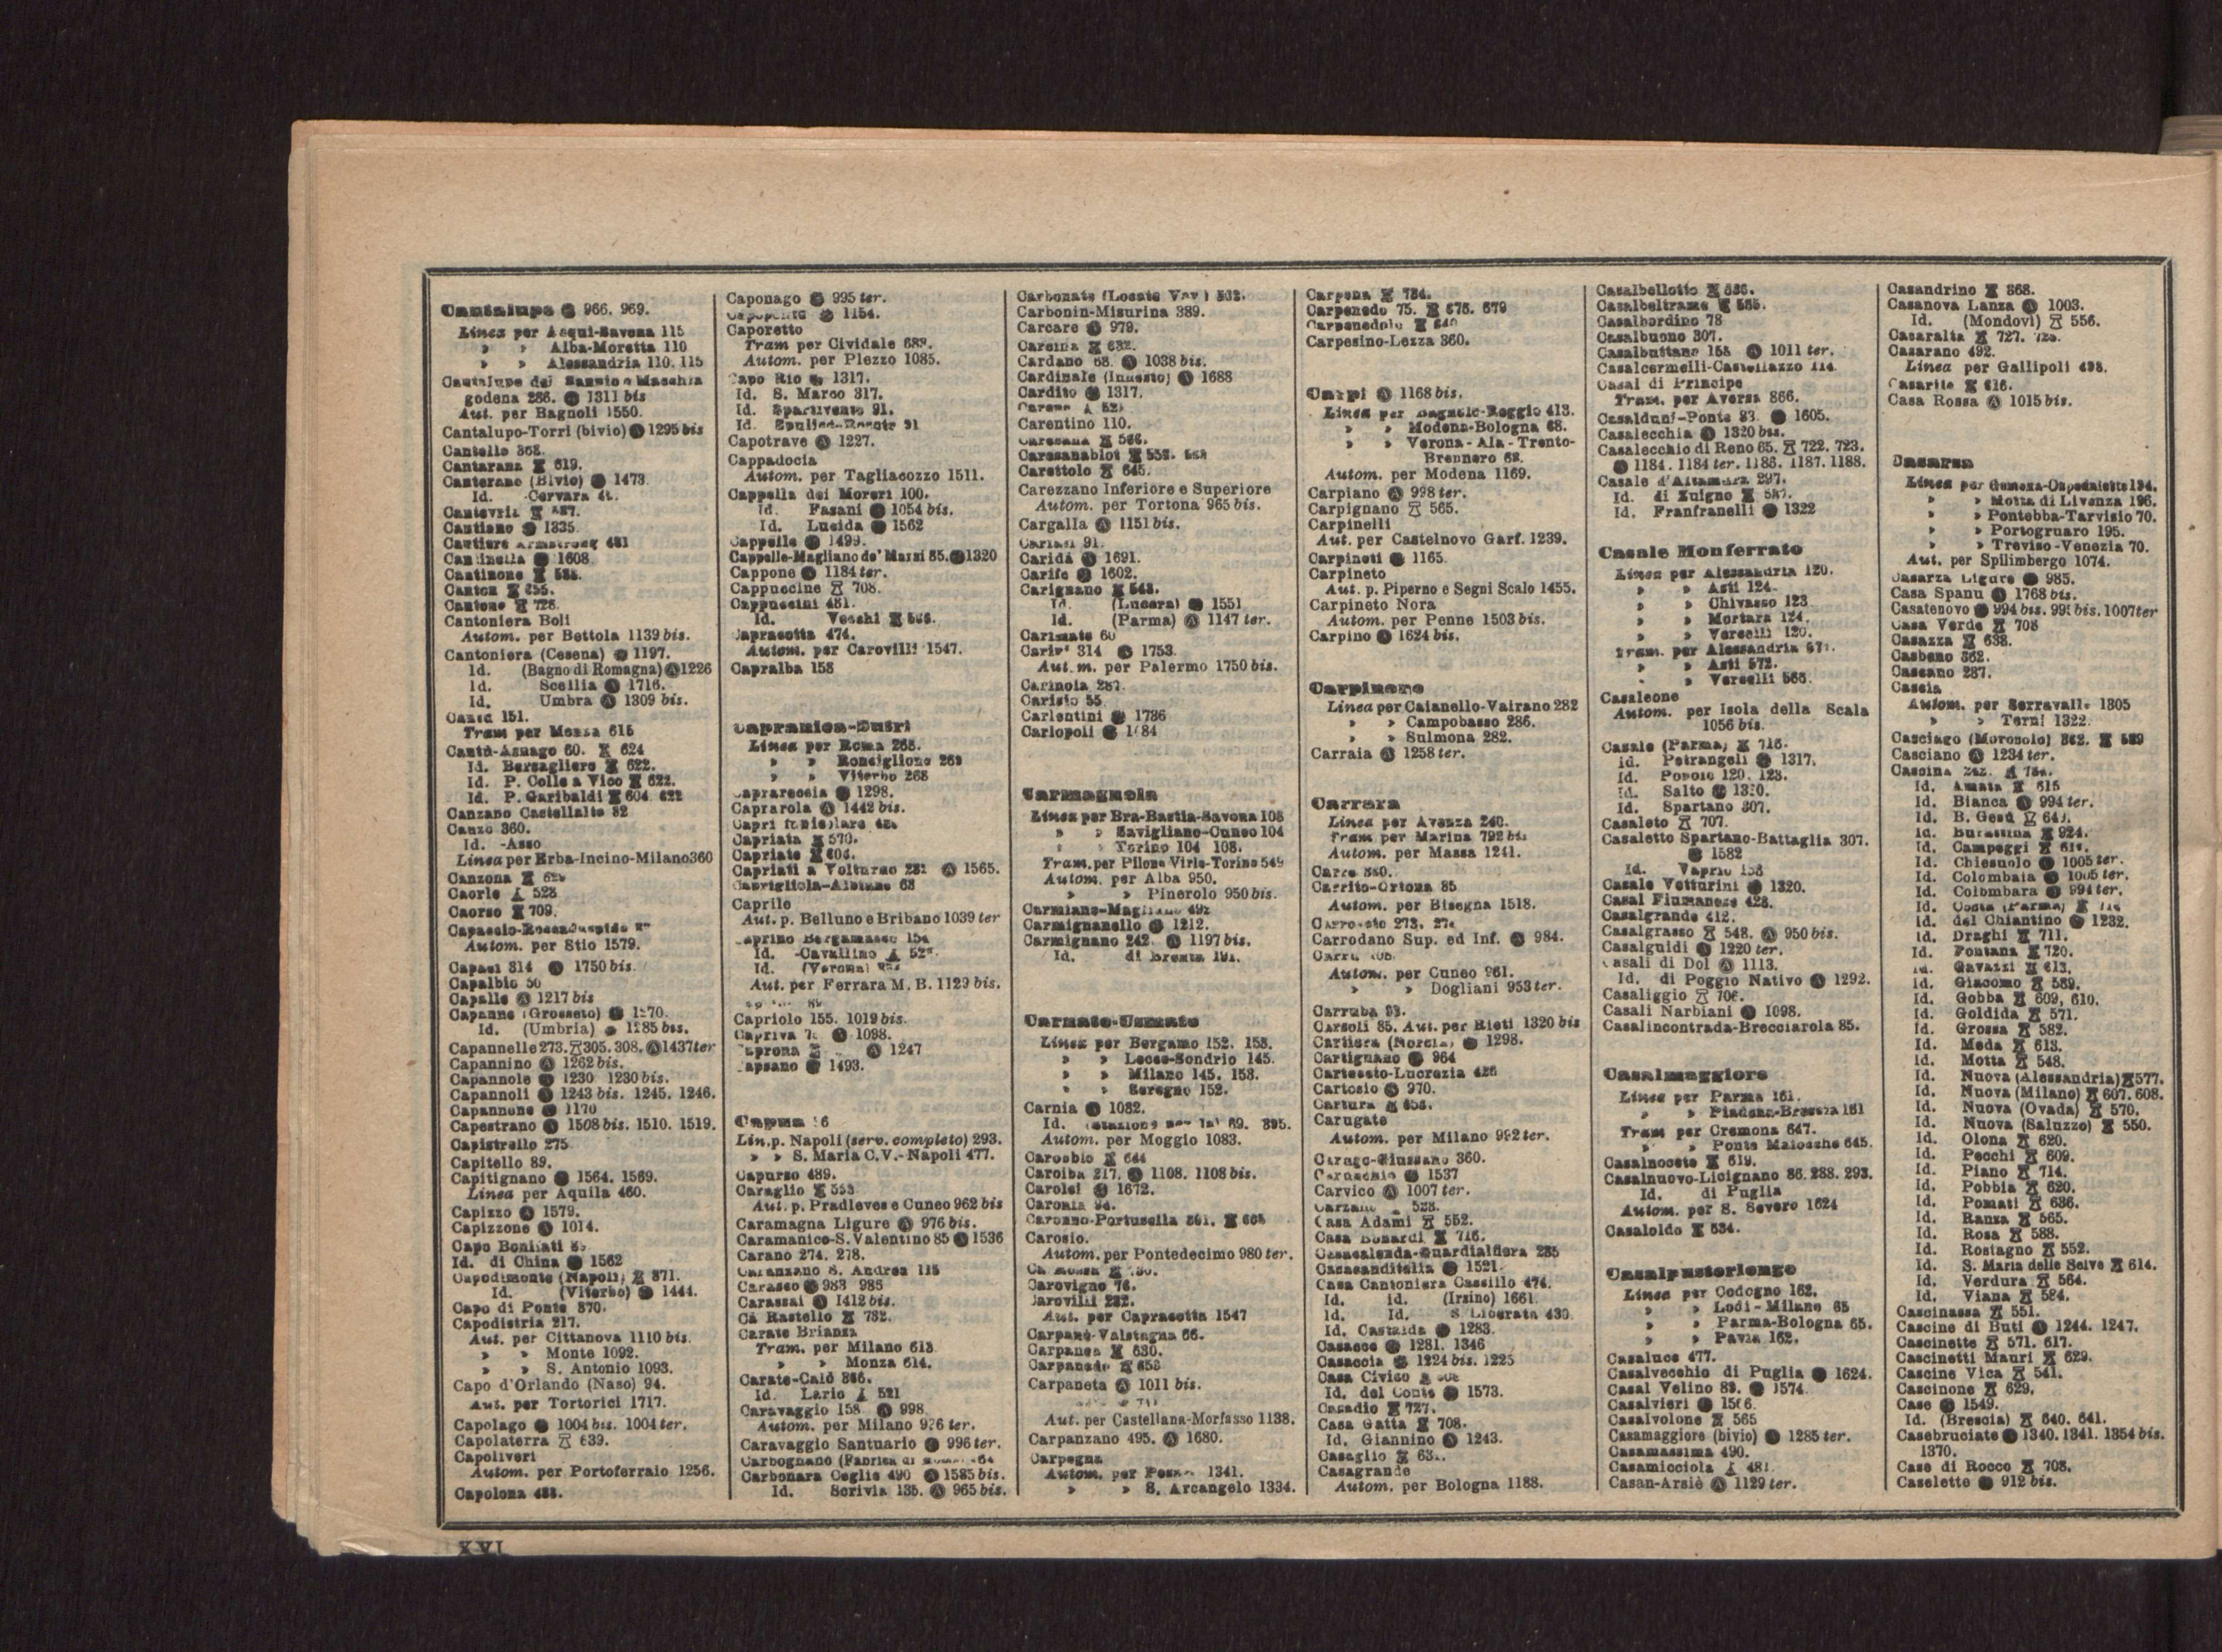 Cantalupo 966. 969.
Linea per Acqui-Savona 115
» » Alba-Moretta 110
» » Alessandria 110. 115
Cantalupo del Sannio e Macchia
godena 286. 1311 bis
Aut. per Bagnoli 1550.
Cantalupo-Torri (bivio) 1295 bis
Cantello 362.
Cantarana 619.
Canterano (Bivio) 1473
Id. Cervara
Cantiano 1335
Cantiere Armstrong 481
Cantinella 1608
Cantinone
Canton
Cantone 726.
Cantoniera Boli
Autom. per Bettola 1139 bis.
Cantoniera (Cesena) 1197.
Id. (Bagno di Romagna) 1226
Id. Scellia 1716.
Id. Umbra 1309 bis.
151.
Tram per Monza 615
Cantù-Asnago 60. 624
Id. Bersagliere 622.
Id. P. Colle a Vico 622.
Id. P. Garibaldi 604. 622
Canzano Castellalto 82
Canzo 360.
Id. -Asso
Linea per Erba-Incino-Milano 360
Canzona
Caorle 528
Caorso 709.
Autom. per Stio 1579.
Capaci 314 1750 bis.
Capalbio 50
Capalle 1217 bis
Capanne (Grosseto)
Id. (Umbria) 1285 bis.
Capannelle 273. 305. 308. 1437 ter
Capannino 1262 bis.
Capannole 1230 1230 bis.
Capannoli 1243 bis. 1245. 1246.
Capannone 1170
Capestrano 1508 bis. 1510. 1519.
Capistrello 275
Capitello 89.
Capitignano 1564. 1569.
Linea per Aquila 460.
Capizzo 1579.
Capizzone 1014.
Capo Bonifati
Id. di China 1562
Capodimonte (Napoli) 871.
Id. (Viterbo) 1444.
Capo di Ponte 370.
Capodistria 217.
Aut. per Cittanova 1110 bis.
» » Monte 1092.
» » S. Antonio 1093.
Capo d'Orlando (Naso) 94.
Aut. per Tortorici 1717.
Capolago 1004 bis. 1004 ter.
Capolaterra 639.
Capoliveri
Autom. per Portoferraio 1256.
Capolona
Caponago 995 ter.
1154.
Caporetto
Tram per Cividale
Autom. per Plezzo 1085.
Capo Rio 1317.
Id. S. Marco 317.
Id. Spartivento 91.
Id.
Capotrave 1227.
Cappadocia
Autom. per Tagliacozzo 1511.
Cappella dei Moreri 100.
Id. Fasani 1054 bis.
Id. Lucida 1562
Cappelle 1499.
Cappelle-Magliano de' Marsi 85. 1320
Cappone 1184 ter.
Cappuccine 708.
Cappuccini 481.
Id. Vecchi
Capracotta 474.
Autom. per Carovilli 1547.
Capralba 158
Capranica-Sutri
Linea per Roma 268.
» » Ronciglione 268
» » Viterbo 268
Caprareccia 1298.
Caprarola 1442 bis.
Capriata 570.
Capriate 604.
Capriati a Volturno 1565.
Caprigliola-Albiano 63
Caprile
Aut. p. Belluno e Bribano 1039 ter
Caprino Bergamasco 154
Id. -Cavallino
Id. (Verona)
Aut. per Ferrara M. B. 1129 bis.
Capriolo 155. 1019 bis.
Capriva 1098.
Caprona 1247
Capsano 1493.
Capua
Lin. p. Napoli (serv. completo) 293.
» » S. Maria C.V.-Napoli 477.
Capurso 489.
Caraglio 553
Aut. p. Pradleves e Cuneo 962 bis
Caramagna Ligure 976 bis.
Caramanico-S. Valentino 85 1536
Carano 274. 278.
Caranzano S. Andrea 115
Carasco 983 985
Carassai 1412 bis.
Cà Rastello 732.
Carate Brianza
Tram. per Milano 613
» » Monza 614.
Carate-Calò
Id. Lario 521
Caravaggio 158 998
Autom. per Milano 996 ter.
Caravaggio Santuario 996 ter.
Carbognano (Fabrica di
Carbonara Ceglie 490 1585 bis.
Id. Scrivia 135. 965 bis.
Carbonate (Locate Var.)
Carbonin-Misurina 389.
Carcare 979.
Carcina 632.
Cardano 68. 1038 bis.
Cardinale (Innesto) 1688
Cardito 1317.
Carentino 110.
Caresana
Caresanablot
Carettolo 645.
Carezzano Inferiore e Superiore
Autom. per Tortona 965 bis.
Cargalla 1151 bis.
Cariati 91.
Caridà 1691.
Carife 1602.
Carignano 548.
Id. (Lucera) 1551
Id. (Parma) 1147 ter.
Carimate 60
Carini 314 1753.
Autom. per Palermo 1750 bis.
Carinola
Carisio 55
Carlentini 1736
Carlopoli
Carmagnola
Linea per Bra-Bastia-Savona 108
» » Savigliano-Cuneo 104
» » Torino 104 108.
Tram. per Pilone Virle-Torino 549
Autom. per Alba 950.
» » Pinerolo 950 bis.
Carmiano-Magliano 492
Carmignanello 1212.
Carmignano 242. 1197 bis.
Id. di Brenta 191.
Carnate-Usmate
Linea per Bergamo 152. 158.
» » Lecco-Sondrio 145.
» » Milano 145. 158.
» » Seregno 152.
Carnia 1082.
Id. 69. 395.
Autom. per Moggio 1083.
Carobbio 644
Caroiba 217. 1108. 1108 bis.
Carolei 1672.
Caronia 94.
Caronno-Pertusella 361.
Carosio.
Autom. per Pontedecimo 980 ter.
Carovigno 76.
Carovilli 282.
Aut. per Capracotta 1547
Carpanè-Valstagna 66.
Carpanea 630.
Carpanedo
Carpaneta 1011 bis.
Aut. per Castellana-Morfasso 1138.
Carpanzano 495. 1680.
Carpegna
Autom. per Pesaro 1341.
» » S. Arcangelo 1334.
Carpena 734.
Carpenedo 75. 676. 679
Carpenedolo 640
Carpesino-Lezza 360.
Carpi 1168 bis.
Linea per Bagnolo-Reggio 413.
» » Modena-Bologna 68.
» » Verona - Ala - Trento-
Brennero 68.
Autom. per Modena 1169.
Carpiano 998 ter.
Carpignano 565.
Carpinelli
Aut. per Castelnovo Garf. 1239.
Carpineti 1165.
Carpineto
Aut. p. Piperno e Segni Scalo 1455.
Carpineto Nora
Autom. per Penne 1503 bis.
Carpino 1624 bis.
Carpinone
Linea per Caianello-Vairano 282
» » Campobasso 286.
» » Sulmona 282.
Carraia 1258 ter.
Carrara
Linea per Avenza 240.
Tram per Marina 792 bis
Autom. per Massa 1241.
Carrè 380.
Carrito-Ortona 85
Autom. per Bisegna 1518.
Carroceto 273. 274
Carrodano Sup. ed Inf. 984.
Carrù
Autom. per Cuneo 961.
» » Dogliani 953 ter.
Carruba 93.
Carsoli 85. Aut. per Rieti 1320 bis
Cartiera (Norcia) 1298.
Cartignano 964
Cartoceto-Lucrezia 426
Cartosio 970.
Cartura 653.
Carugate
Autom. per Milano 992 ter.
Carugo-Giussano 360.
Carunchio 1537
Carvico 1007 ter.
Carzano 528.
Casa Adami 552.
Casa Bonardi 716.
Casacalenda-Guardialfiera 285
Casacanditella 1521
Casa Cantoniera Cassillo 474.
Id. id. (Irsino) 1661
Id. Id. S Liberata 430
Id. Castalda 1283.
Casacce 1281. 1346
Casaccia 1224 bis. 1225
Casa Civico
Id. del Conte 1573.
Casadio 727.
Casa Gatta 708.
Id. Giannino 1243.
Casaglio
Casagrande
Autom. per Bologna 1188.
Casalbellotto 636.
Casalbeltrame 565.
Casalbordino 78
Casalbuono 307.
Casalbuttano 158 1011 ter.
Casalcermelli-Castellazzo 114
Casal di Principe
Tram. per Aversa 866.
Casalduni-Ponte 83. 1605.
Casalecchia 1320 bis.
Casalecchio di Reno 65. 722. 723.
1184. 1184 ter. 1186. 1187. 1188.
Casale d'Altamura 297.
Id. di Zuigno 587.
Id. Franfranelli 1322
Casale Monferrato
Linea per Alessandria 120.
» » Asti 124.
» » Chivasso 123
» » Mortara 124.
» » Vercelli 120.
Tram. per Alessandria
» » Asti 572.
» » Vercelli 565.
Casaleone
Autom. per Isola della Scala
1056 bis.
Casale (Parma) 716.
Id. Petrangeli 1317.
Id. Popolo 120. 123.
Id. Salto
Id. Spartano 307.
Casaleto 707.
Casaletto Spartano-Battaglia 307.
1582
Id. Vaprio 158
Casale Vetturini 1320.
Casal Fiumanese 428.
Casalgrande 412.
Casalgrasso 548. 950 bis.
Casalguidi 1220 ter.
Casali di Dol 1113.
Id. di Poggio Nativo 1292.
Casaliggio 706.
Casali Narbiani 1098.
Casalincontrada-Brecciarola 85.
Casalmaggiore
Linea per Parma 161.
» » Piadena-Brescia 161
Tram per Cremona 647.
» » Ponte Maiocche 645.
Casalnoceto 619.
Casalnuovo-Licignano 86. 288. 293.
Id. di Puglia
Autom. per S. Severo 1624
Casaloldo 634.
Casalpusterlengo
Linea per Codogno 162.
» » Lodi - Milano 65
» » Parma-Bologna 65.
» » Pavia 162.
Casaluce 477.
Casalvecchio di Puglia 1624.
Casal Velino 89. 1574
Casalvieri 1566.
Casalvolone 565
Casamaggiore (bivio) 1285 ter.
Casamassima 490.
Casamicciola 481
Casan-Arsiè 1129 ter.
Casandrino 868.
Casanova Lanza 1003.
Id. (Mondovì) 556.
Casaralta 727.
Casarano 492.
Linea per Gallipoli 498.
Casarile 616.
Casa Rossa 1015 bis.
Casarsa
Linea per Gemona-Ospedaletto 194.
» » Motta di Livenza 196.
» » Pontebba-Tarvisio 70.
» » Portogruaro 195.
» » Treviso-Venezia 70.
Aut. per Spilimbergo 1074.
Casarza Ligure 985.
Casa Spanu 1768 bis.
Casatenovo 994 bis. 995 bis. 1007 ter
Casa Verde 708
Casazza 638.
Casbeno 362.
Cascano 287.
Cascia
Autom. per Serravalle 1305
» » Terni 1322.
Casciago (Morosolo) 362. 589
Casciano 1234 ter.
Cascina
Id. Amata 615
Id. Bianca 994 ter.
Id. B. Gesù
Id. Burassina 924.
Id. Campeggi
Id. Chiesuolo 1005 ter.
Id. Colombaia 1005 ter.
Id. Colombara 994 ter.
Id. Costa (Parma)
Id. del Chiantino 1232.
Id. Draghi 711.
Id. Fontana 720.
Id. Gavazzi 613.
Id. Giacomo 589.
Id. Gobba 609, 610.
Id. Goldida 571.
Id. Grossa 582.
Id. Meda 613.
Id. Motta 548.
Id. Nuova (Alessandria) 577.
Id. Nuova (Milano) 607. 608.
Id. Nuova (Ovada) 570.
Id. Nuova (Saluzzo) 550.
Id. Olona 620.
Id. Pecchi 609.
Id. Piano 714.
Id. Pobbia 620.
Id. Pomati 636.
Id. Ranza 565.
Id. Rosa 588.
Id. Rostagno 552.
Id. S. Maria delle Selve 614.
Id. Verdura 564.
Id. Viana 584.
Cascinassa 551.
Cascine di Buti 1244. 1247.
Cascinette 571. 617.
Cascinetti Mauri 629.
Cascine Vica 541.
Cascinone 629.
Case 1549.
Id. (Brescia) 640. 641.
Casebruciate 1340. 1341. 1354 bis.
1370.
Case di Rocco 708.
Caselette 912 bis.
XVI